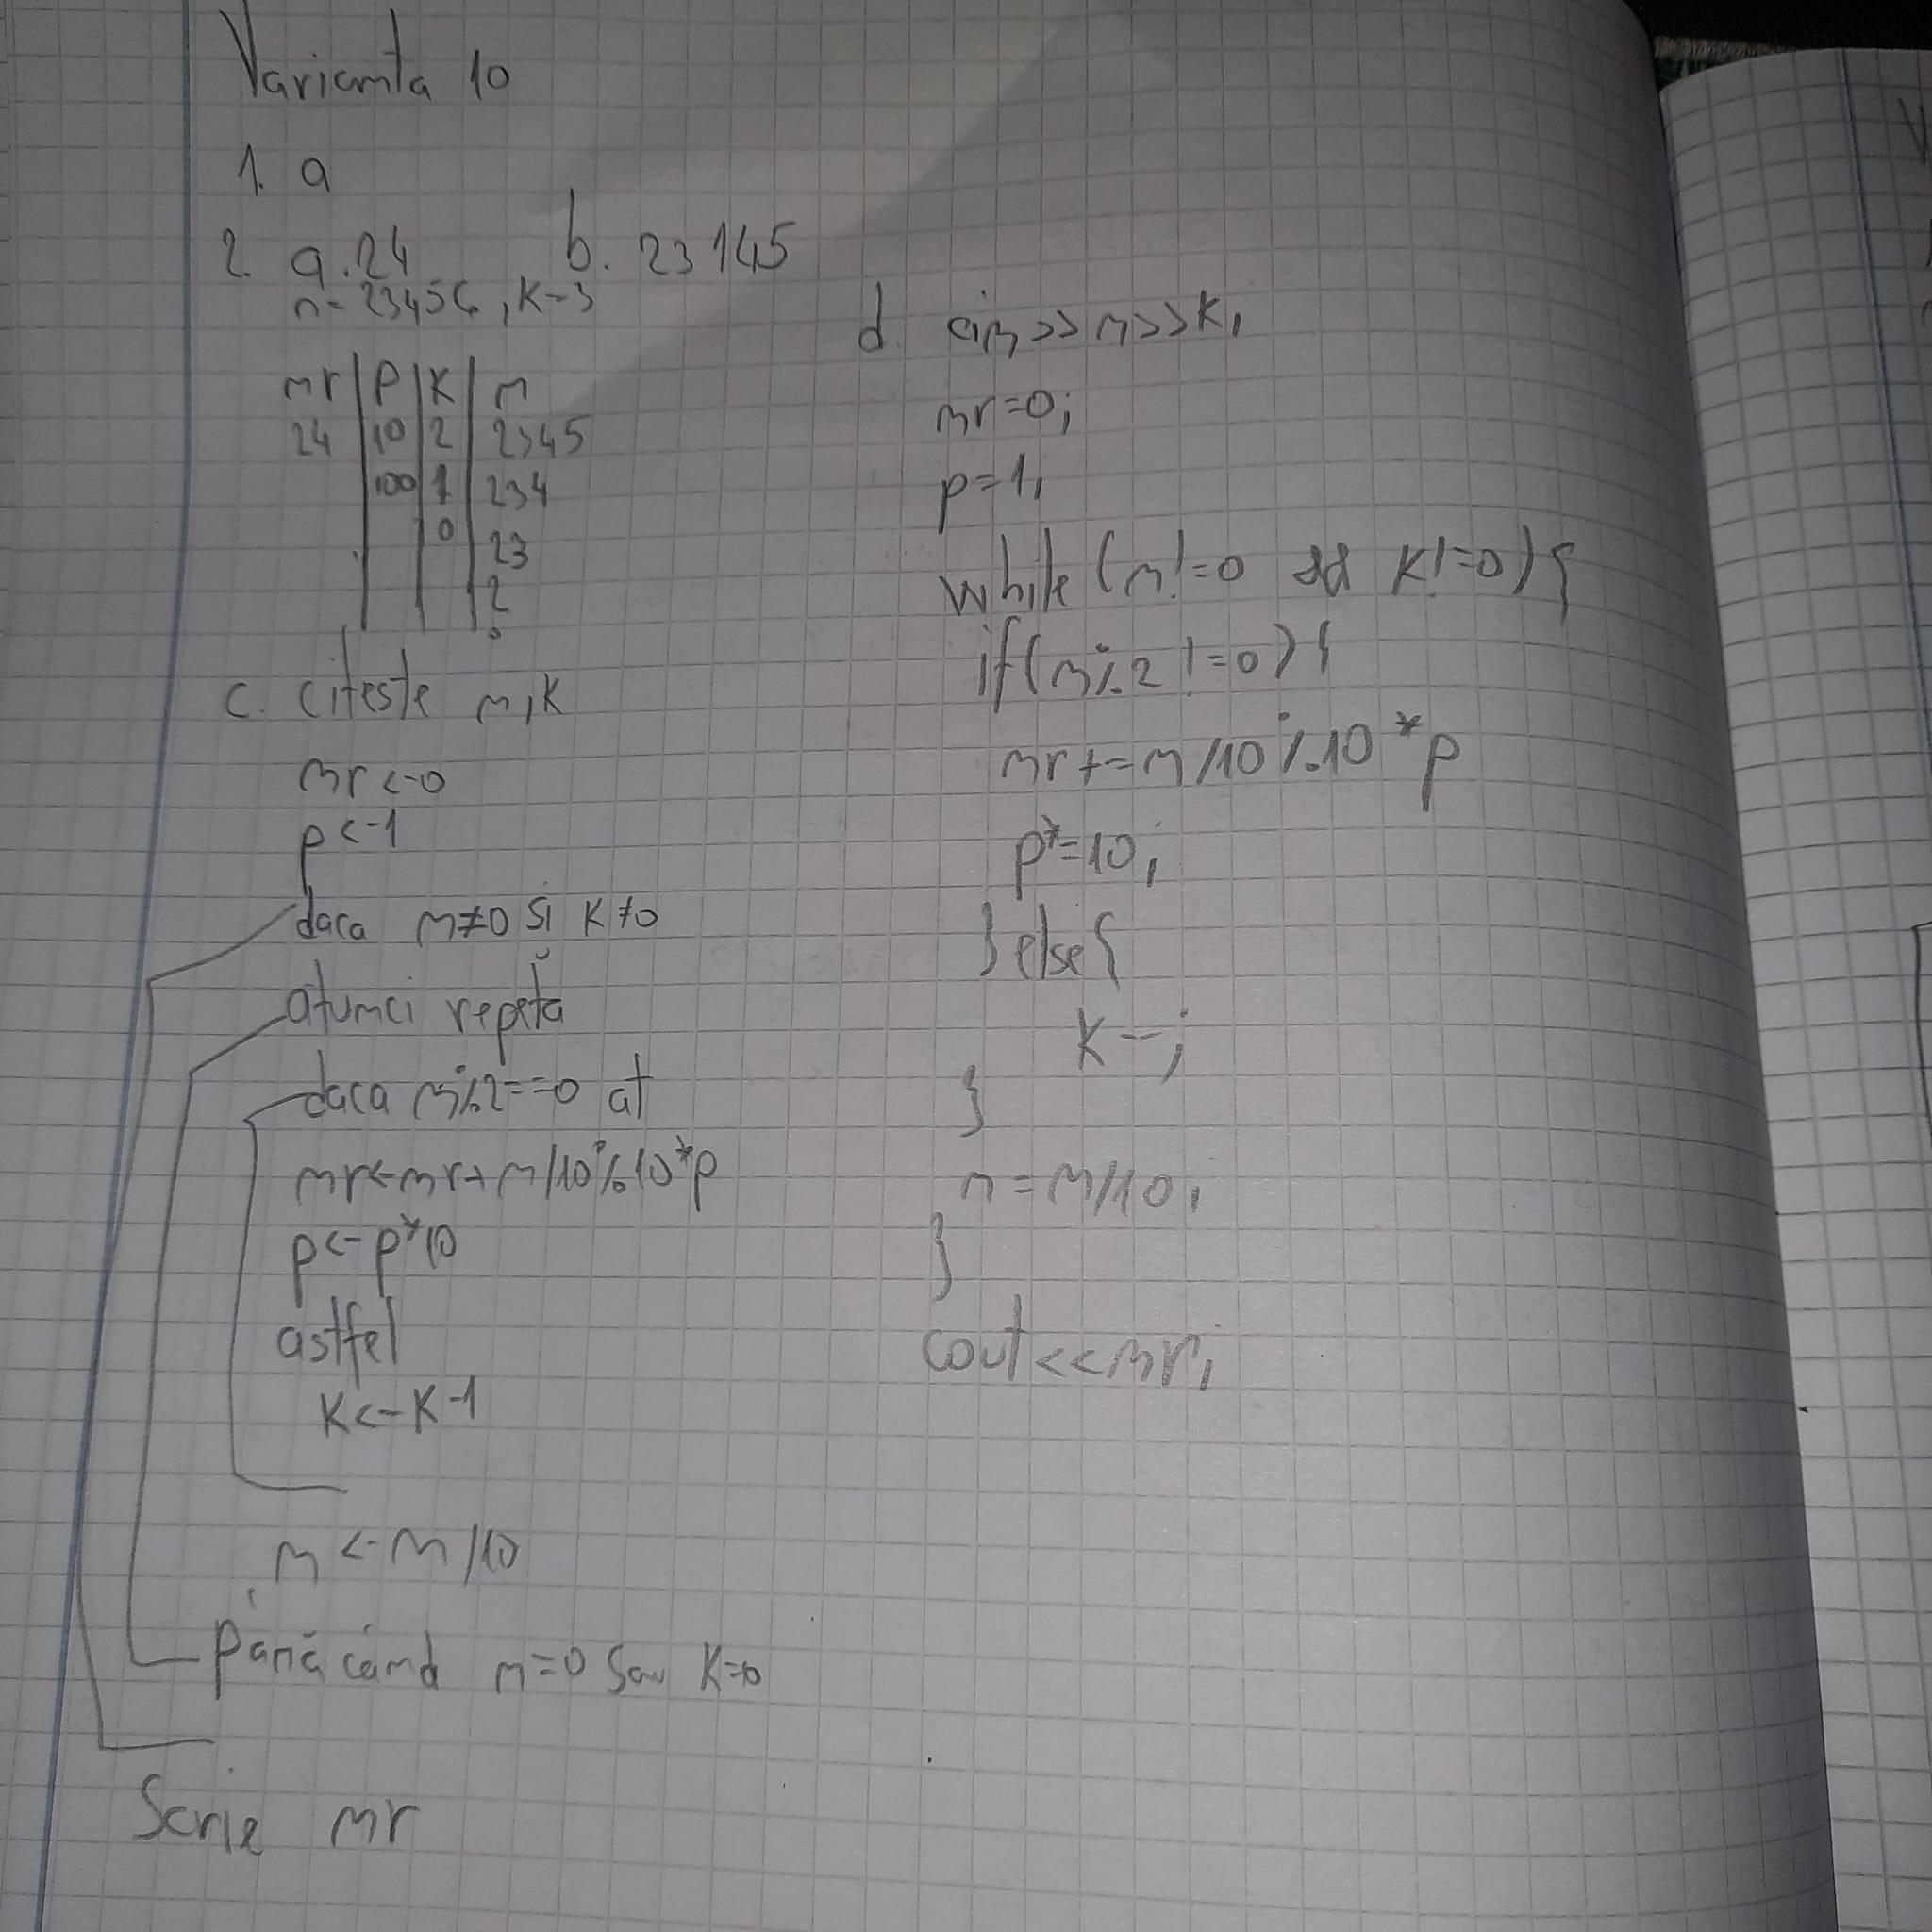 Varianta 10
1. a
2. a. 24 b. 23145
n=23456, K=3
nr | p | K | n
24 | 10 | 2 | 2345
100 | 1 | 234
0 | 23
2
0
c. citeste n, K
nr <- 0
p <- 1
daca n≠0 si K≠0
atunci repetă
daca n%2==0 at
nr<-nr+n/10%10*p
p<-p*10
astfel
K<-K-1
n <- n/10
Până când n=0 sau K=0
Scrie nr
d cin>>n>>K;
nr=0;
p=1;
while (n!=0 && K!=0){
if(n%2!=0){
nr+=n/10%10*p
p*=10;
}else{
K--;
}
n=n/10;
}
cout<<nr;